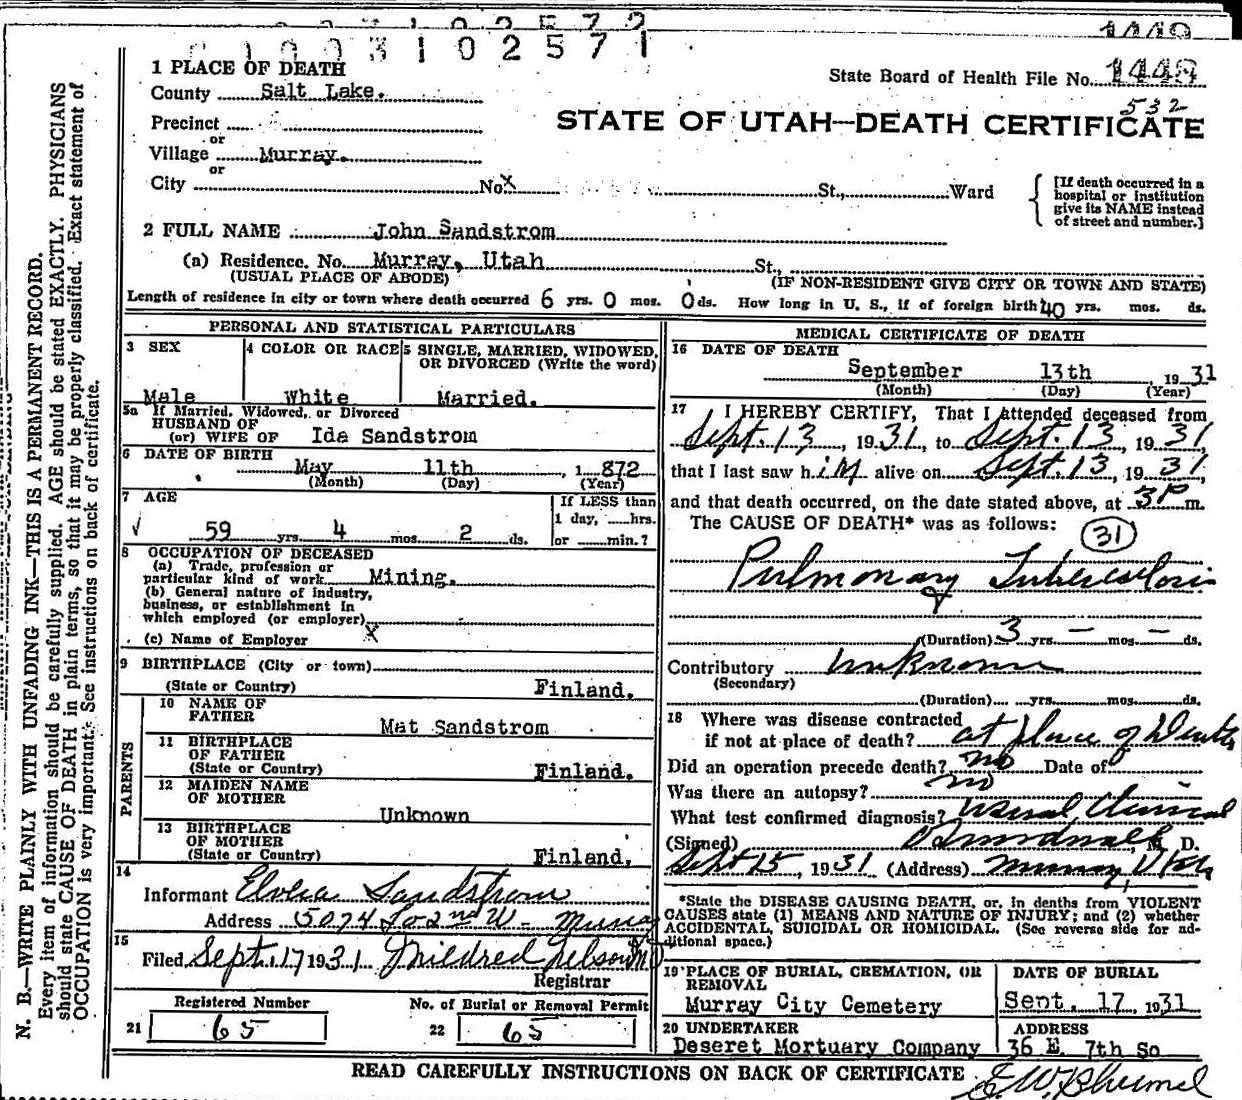 1003102571
1449
1 PLACE OF DEATH
State Board of Health File No. 1448
County Salt Lake.
532
Precinct
STATE OF UTAH—DEATH CERTIFICATE
or
Village Murray.
or
City No X St., Ward
[If death occurred in a hospital or institution give its NAME instead of street and number.]
2 FULL NAME John Sandstrom
(a) Residence. No. Murray, Utah St.,
(USUAL PLACE OF ABODE) (IF NON-RESIDENT GIVE CITY OR TOWN AND STATE)
Length of residence in city or town where death occurred 6 yrs. 0 mos. 0 ds. How long in U. S., if of foreign birth 40 yrs. mos. ds.
PERSONAL AND STATISTICAL PARTICULARS
3 SEX
Male
4 COLOR OR RACE
White
5 SINGLE, MARRIED, WIDOWED, OR DIVORCED (Write the word)
Married.
5a If Married, Widowed, or Divorced
HUSBAND OF
(or) WIFE OF Ida Sandstrom
6 DATE OF BIRTH
May 11th, 1872
(Month) (Day) (Year)
7 AGE
59 yrs. 4 mos. 2 ds.
If LESS than
1 day, hrs.
or min.?
8 OCCUPATION OF DECEASED
(a) Trade, profession or
particular kind of work Mining.
(b) General nature of industry,
business, or establishment in
which employed (or employer)
(c) Name of Employer X
9 BIRTHPLACE (City or town)
(State or Country) Finland.
PARENTS
10 NAME OF FATHER Mat Sandstrom
11 BIRTHPLACE OF FATHER
(State or Country) Finland.
12 MAIDEN NAME OF MOTHER Unknown
13 BIRTHPLACE OF MOTHER
(State or Country) Finland.
14
Informant Sandstrom
Address 5074 So 2nd W - Murray
15
Filed Sept. 17 1931 Mildred Nelson
Registrar
Registered Number
21 65
No. of Burial or Removal Permit
22 65
MEDICAL CERTIFICATE OF DEATH
16 DATE OF DEATH
September 13th 1931
(Month) (Day) (Year)
17 I HEREBY CERTIFY, That I attended deceased from
Sept. 13, 1931, to Sept. 13, 1931,
that I last saw him alive on Sept. 13, 1931,
and that death occurred, on the date stated above, at 3P m.
The CAUSE OF DEATH* was as follows:
31
Pulmonary Tuberculosis
(Duration) 3 yrs. — mos. — ds.
Contributory Unknown
(Secondary)
(Duration) yrs. mos. ds.
18 Where was disease contracted
if not at place of death? at place of Death
Did an operation precede death? no Date of
Was there an autopsy? no
What test confirmed diagnosis? usual Clinical
(Signed) M. D.
Sept 15, 1931 (Address) Murray, Utah
*State the DISEASE CAUSING DEATH, or, in deaths from VIOLENT
CAUSES state (1) MEANS AND NATURE OF INJURY; and (2) whether
ACCIDENTAL, SUICIDAL OR HOMICIDAL. (See reverse side for ad-
ditional space.)
19 PLACE OF BURIAL, CREMATION, OR REMOVAL
Murray City Cemetery
DATE OF BURIAL
Sept. 17, 1931
20 UNDERTAKER
Deseret Mortuary Company
ADDRESS
36 E. 7th So
READ CAREFULLY INSTRUCTIONS ON BACK OF CERTIFICATE
N. B.—WRITE PLAINLY WITH UNFADING INK—THIS IS A PERMANENT RECORD.
Every item of information should be carefully supplied. AGE should be stated EXACTLY. PHYSICIANS
should state CAUSE OF DEATH in plain terms, so that it may be properly classified. Exact statement of
OCCUPATION is very important. See instructions on back of certificate.